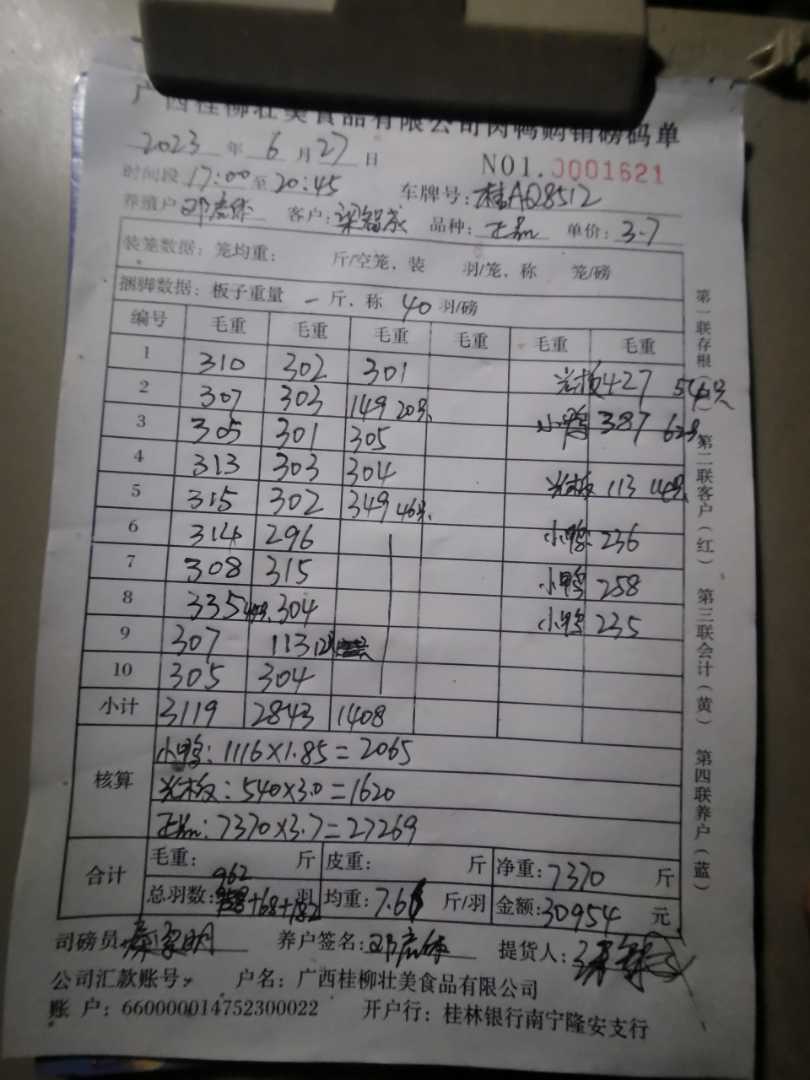 广西桂柳壮美食品有限公司肉鸭购销磅码单
2023 年 6 月 27 日 NO1.0001621
时间段 17:00 至 20:45 车牌号: 桂AQ8512
养殖户 客户: 梁智成 品种: 正品 单价: 3.7
装笼数据: 笼均重: 斤/空笼, 装 羽/笼, 称 笼/磅
捆脚数据: 板子重量 一 斤, 称 40 羽/磅
编号 毛重 毛重 毛重 毛重 毛重 毛重
1 310 302 301 光板 427 54只
2 307 303 149 20只 小鸭 387 62只
3 305 301 305
4 313 303 304 光板 113 14只
5 315 302 349 46只 小鸭 236
6 314 296 小鸭 258
7 308 315 小鸭 235
8 335 304
9 307 113
10 305 304
小计 3119 2843 1408
核算 小鸭: 1116×1.85=2065
光板: 540×3.0=1620
正品: 7370×3.7=27269
合计 毛重: 斤 皮重: 斤 净重: 7370 斤
总羽数: 962 +68+182 羽 均重: 7.6 斤/羽 金额: 30954 元
司磅员 养户签名: 提货人:
公司汇款账号 户名: 广西桂柳壮美食品有限公司
账 户: 660000014752300022 开户行: 桂林银行南宁隆安支行
第一联存根 第二联客户(红) 第三联会计(黄) 第四联养户(蓝)